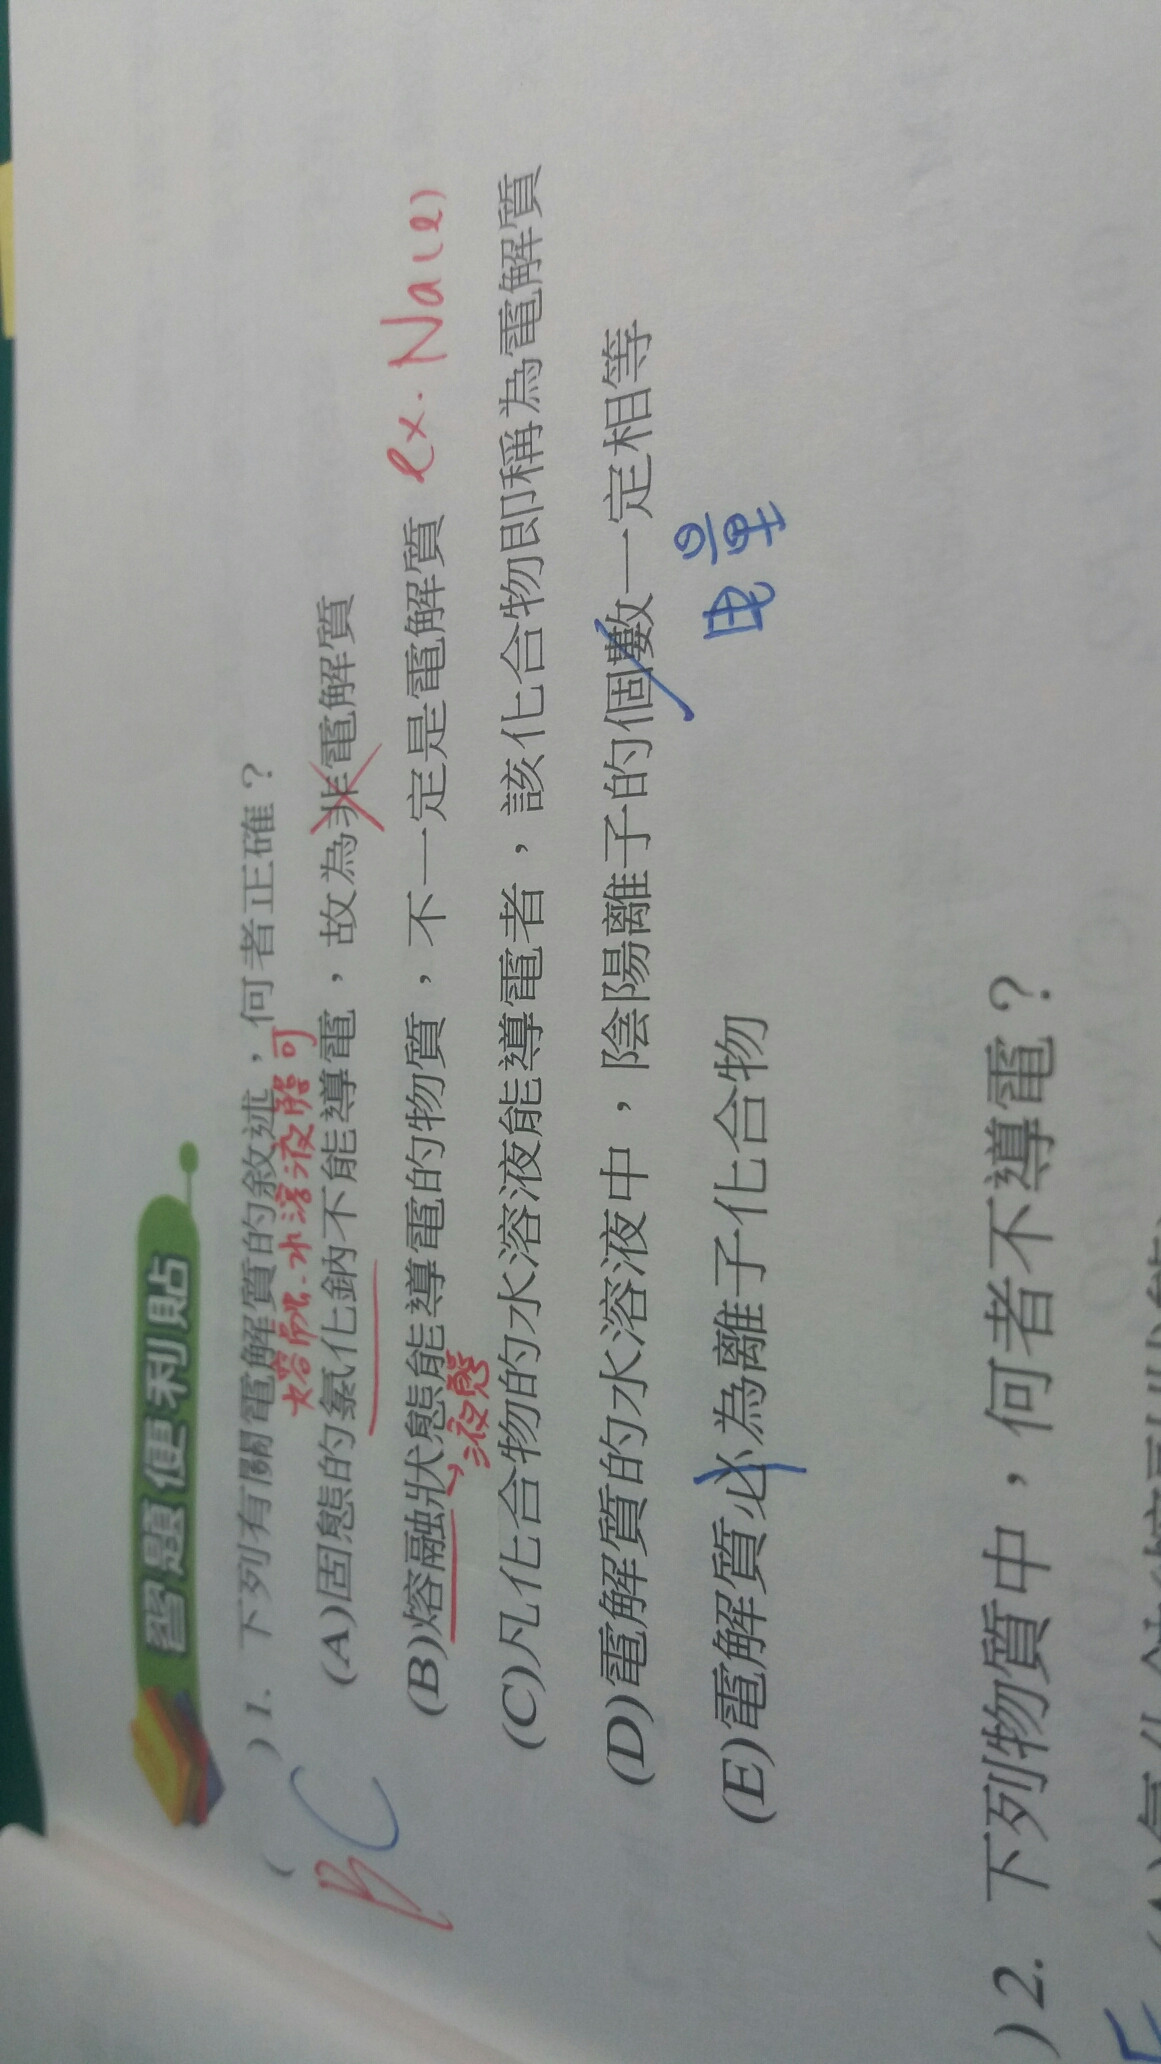 習題便利貼
( BC ) 1. 下列有關電解質的敘述，何者正確？
熔融.水溶液態可
(A)固態的氯化鈉不能導電，故為非電解質
(B)熔融狀態能導電的物質，不一定是電解質 ex. NaCl)
液態
(C)凡化合物的水溶液能導電者，該化合物即稱為電解質
(D)電解質的水溶液中，陰陽離子的個數一定相等
电量
(E)電解質必為離子化合物
) 2. 下列物質中，何者不導電？